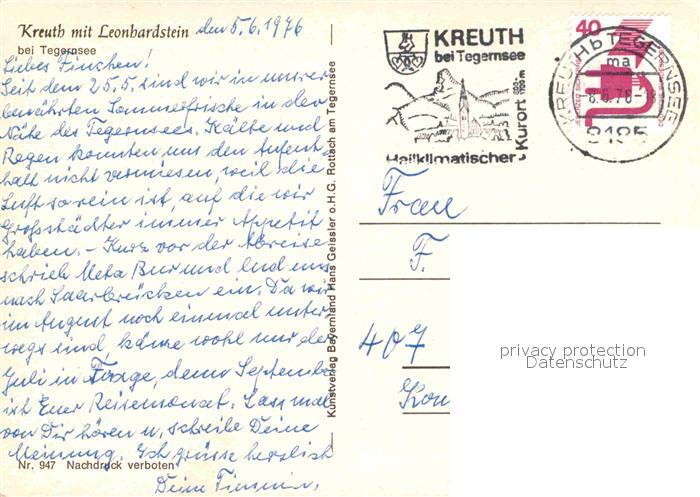 Kreuth mit Leonhardstein den 5.6.1976
bei Tegernsee
Liebes Finchen!
Seit dem 25.5. sind wir in unsrer
bewährten Sommerfrische in der
Nähe des Tegernsees. Kälte und
Regen konnten uns den Aufent-
halt nicht vermiesen, weil die
Luft so rein ist, auf die wir
Großstädter immer Appetit
haben. - Kurz vor der Abreise
schrieb Meta und lud uns
nach Saarbrücken ein. Da wir
im August noch einmal unter-
wegs sind, käme wohl nur der
Juli in Frage, denn September
ist Euer Reisemonat. Lass mal
von Dir hören u. schreibe Deine
Meinung. Ich grüsse herzlich
Deine
Nr. 947 Nachdruck verboten
Kunstverlag Bayernland Hans Geissler o.H.G. Rottach am Tegernsee
KREUTH
bei Tegernsee
Heilklimatischer
Kurort
40
KREUTH b TEGERNSEE
ma
8185
Frau
F.
407
privacy protection
Datenschutz